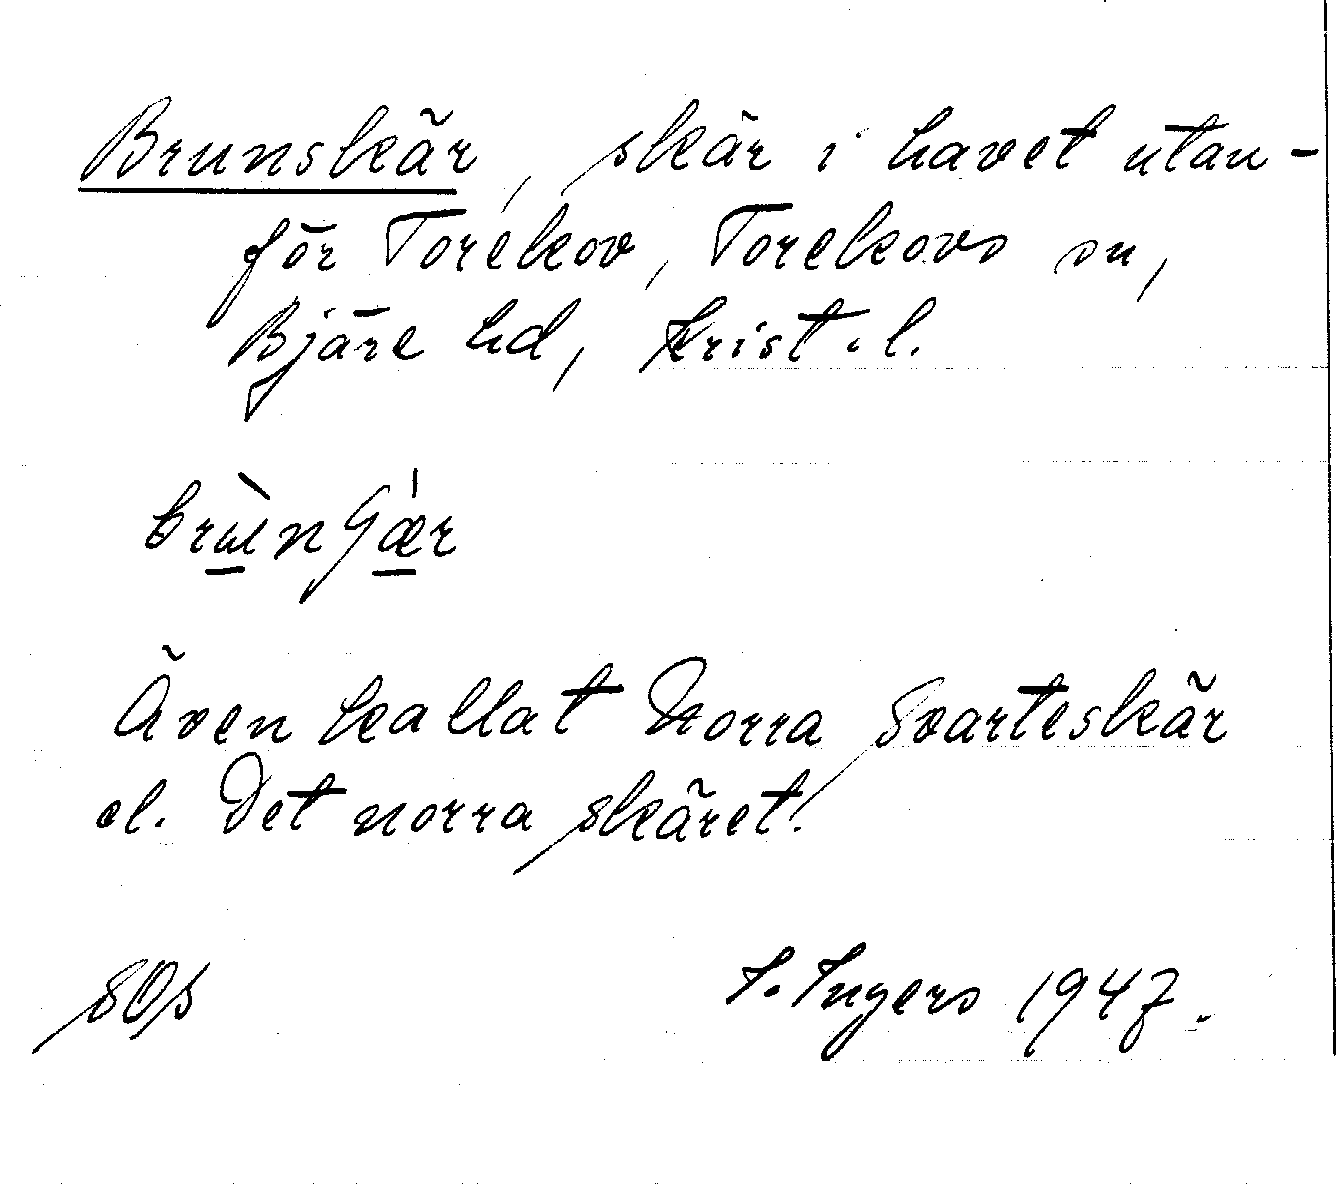 Brunskär, skär i havet utan-
för Torekov, Torekovs sn,
Bjäre hd, Krist. l.
Även kallat Norra Svarteskär
el. Det norra skäret.
I. Ingers 1947.